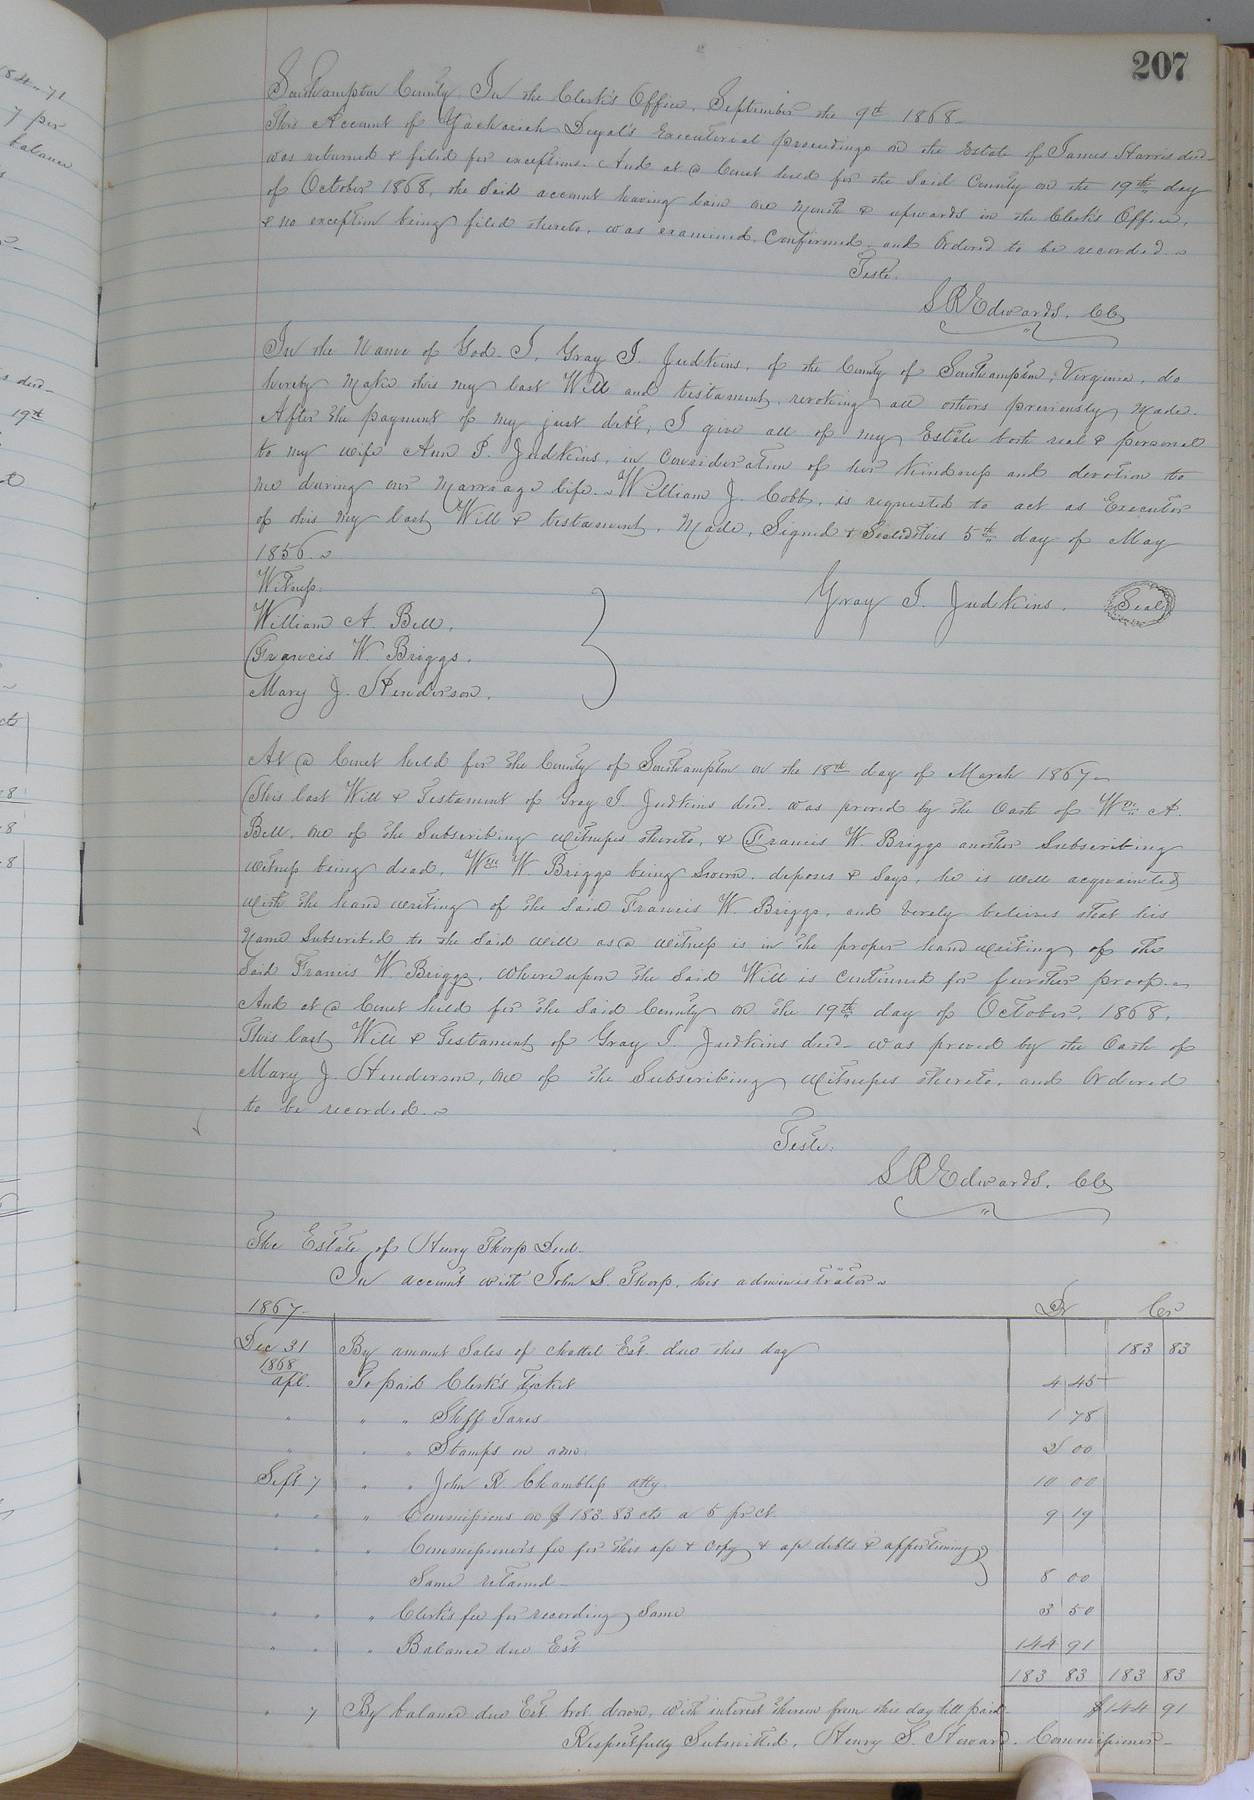 207
Southampton County. In the Clerk's Office, September the 9th 1868.
This Account of Zachariah Deyal's Executorial proceedings on the Estate of James Harris decd.
was returned & filed for exceptions. And at a Court held for the Said County on the 19th day
of October 1868, the Said account having lain one Month & upwards in the Clerk's Office,
& no exception being filed thereto, was examined, Confirmed, and Ordered to be recorded.
Teste.
S R Edwards. CC
In the Name of God. I, Gray I. Judkins, of the County of Southampton, Virginia, do
hereby Make this my last Will and testament, revoking all others previously Made.
After the payment of my just debts, I give all of my Estate both real & personal
to my wife Ann P. Judkins, in Consideration of her Kindness and devotion to
me during our Marriage life. William J. Cobb, is requested to act as Executor
of this my last Will & testament. Made, Signed & Sealed this 5th day of May
1856.
Witness.
Gray I. Judkins. Seal
William A. Bell.
Francis W. Briggs.
Mary J. Henderson.
At a Court held for the County of Southampton on the 18th day of March 1867
This last Will & Testament of Gray I. Judkins decd. was proved by the Oath of Wm. A.
Bell, one of the Subscribing witnesses thereto, & Francis W. Briggs another Subscribing
witness being dead, Wm W Briggs being Sworn, deposes & Says, he is well acquainted
with the hand writing of the Said Francis W. Briggs, and Verely believes that his
Name Subscribed to the Said will as a witness is in the proper hand writing of the
Said Francis W Briggs, whereupon the Said Will is continued for further proof.
And at a Court held for the Said County on the 19th day of October, 1868.
This last Will & Testament of Gray I. Judkins decd. was proved by the Oath of
Mary J. Henderson, one of the Subscribing witnesses thereto, and Ordered
to be recorded.
Teste.
S R Edwards. CC
The Estate of Henry Thorp Decd.
In account with John S. Thorp, his administrator
1867 Dr Cr
Dec 31 By amount Sales of chattel Est. due this day 183 83
1868
apl. To paid Clerk's Ticket 4 45
" " " Sheff Taxes 1 78
" " " Stamps on adm. 2 00
Sept. 7 " " John R. Chambliss atty. 10 00
" " " Commissions on $183.83 cts a 5 pr. ct. 9 19
" " " Commissioner's fee for this a/c & copy & a/c debts & apportioning
Same retained 8 00
" " " Clerk's fee for recording Same 3 50
" " " Balance due Est 144 91
183 83 183 83
" 7 By balance due Est. brot. down, with interest thereon from this day till paid $144 91
Respectfully Submitted, Henry S. Howard. Commissioner